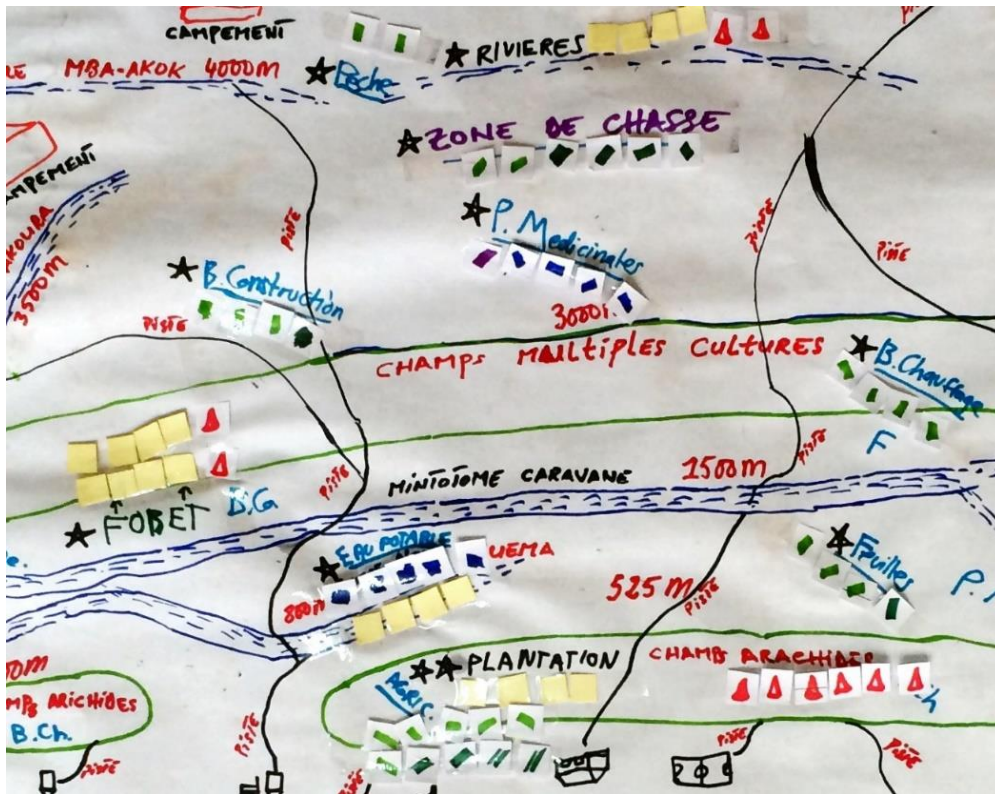 CAMPEMENT
RIVIERES
MBA-AKOK 4000M
Pêche
ZONE DE CHASSE
CAMPEMENT
P. Medicinales
PISTE
PISTE
PISTE
AKOURA
3500M
B. Construction
3000
PISTE
CHAMPS MULTIPLES CULTURES
B. Chauffage
F
PISTE
PISTE
MINTOTOME CARAVANE
1500m
FOBET
B.Ca
EAU POTABLE
UEMA
Feuilles
800m
525 M
PISTE
P.
PLANTATION
CHAMPS ARACHIDES
AGRIC
h
ARICHIDES
B.Ch.
PISTE
PISTE
PISTE
PISTE
PISTE